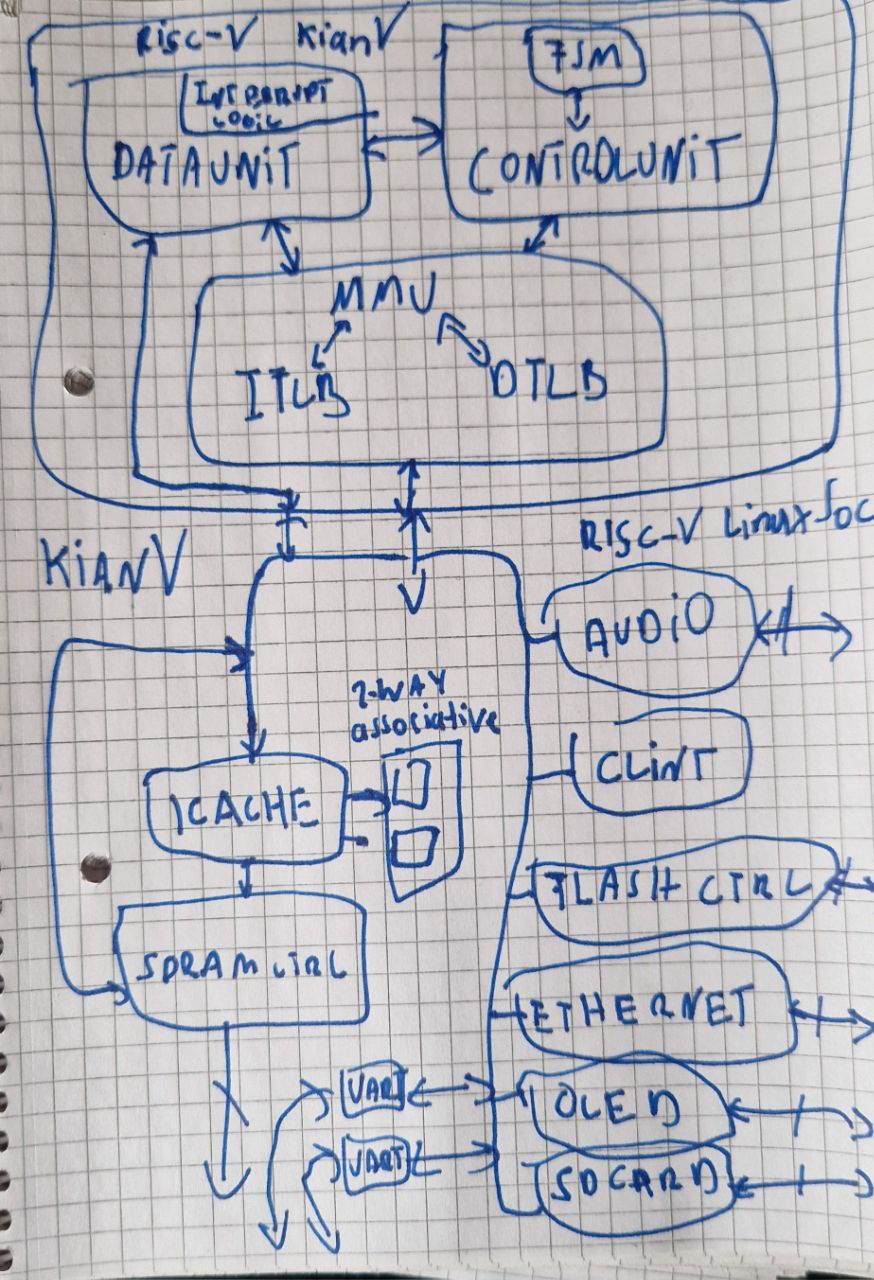 RISC-V KianV
INTERRUPT
LOGIC
DATAUNIT
FSM
CONTROLUNIT
MMU
ITLB
DTLB
KIANV
RISC-V Linux SOC
AUDIO
2-WAY
associative
CLINT
ICACHE
FLASH CTRL
SDRAM CTRL
ETHERNET
UART
OLED
UART
SDCARD